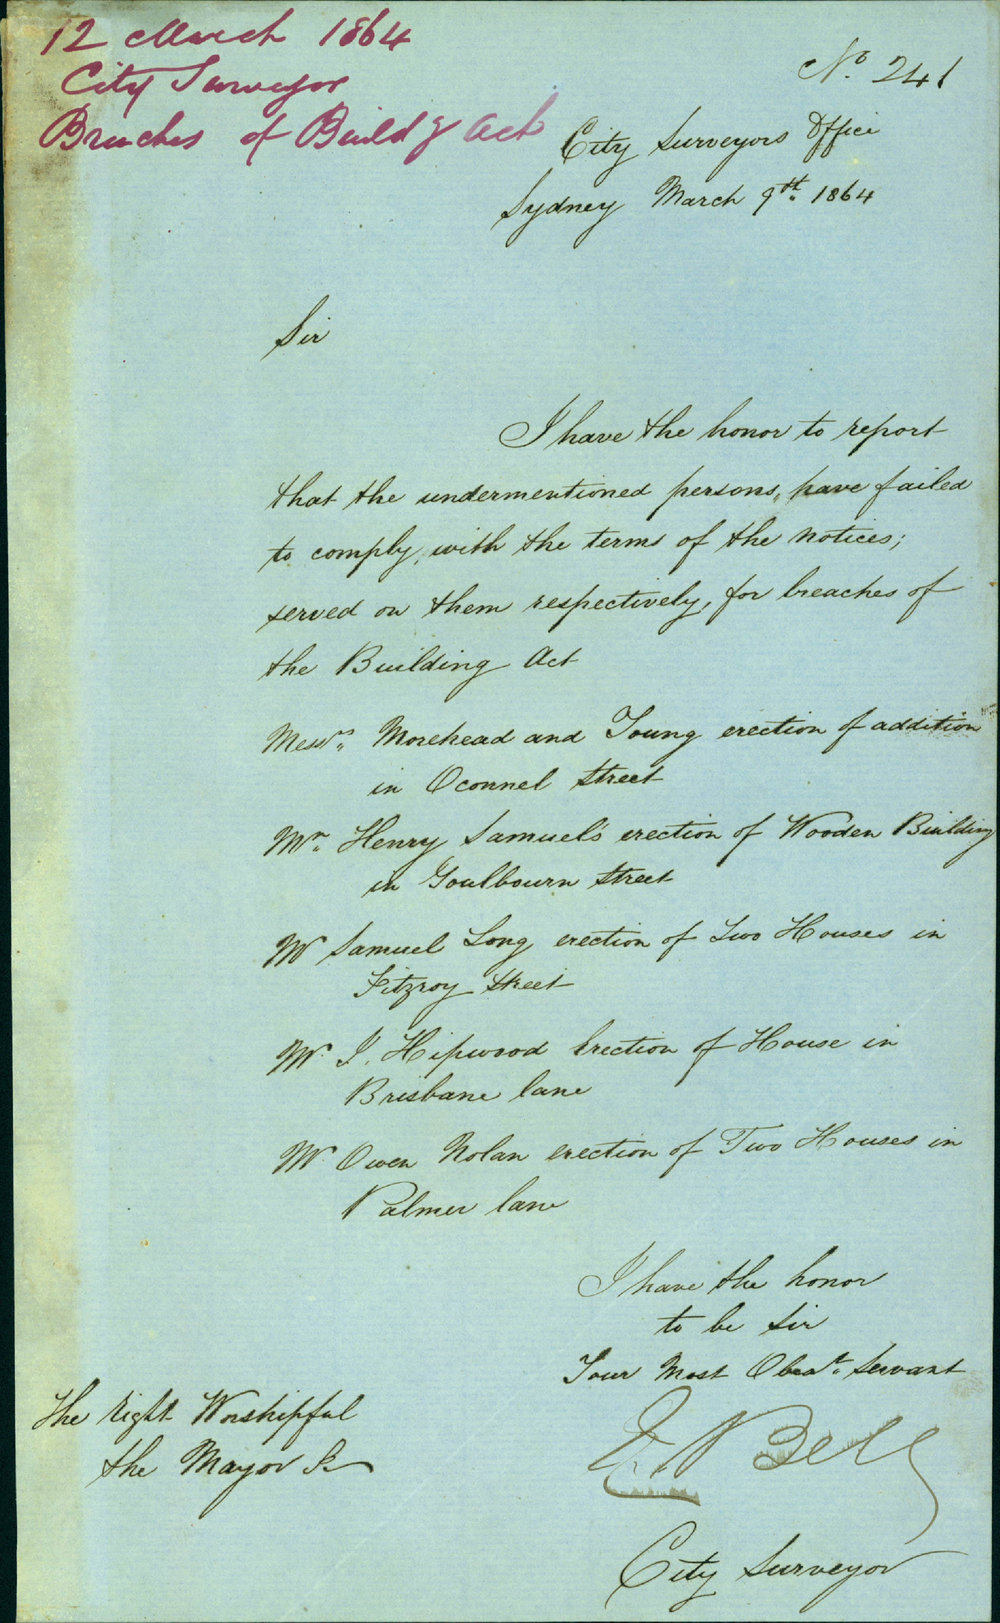 12 March 1864
City Surveyor
Breaches of Buildg Act
No. 241
City Surveyors Office
Sydney March 9th. 1864
Sir
I have the honor to report
that the undermentioned persons, have failed
to comply, with the terms of the notices;
served on them respectively, for breaches of
the Building Act
Messrs. Morehead and Young erection of addition
in Oconnel Street
Mr. Henry Samuel's erection of Wooden Building
in Goulbourn Street
Mr Samuel Long erection of Two Houses in
Fitzroy Street
Mr J. Hipwood Erection of House in
Brisbane lane
Mr Owen Nolan erection of Two Houses in
Palmer lane
I have the honor
to be Sir
Your Most Obedt. Servant
The Right Worshipful
the Mayor &c
E. Bell
City Surveyor